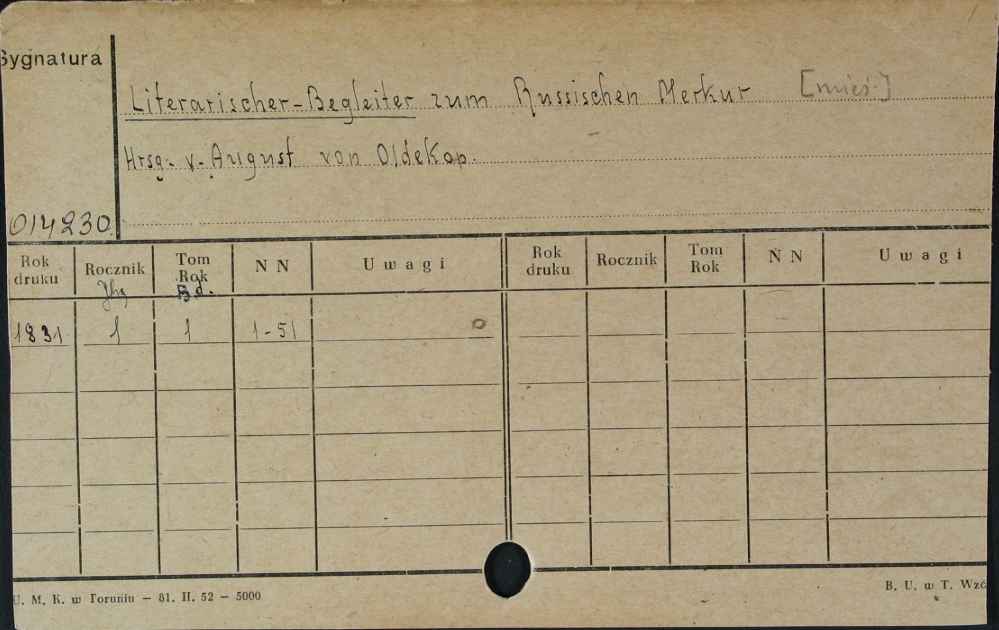 Sygnatura
Literarischer-Begleiter zum Russischen Merkur [mies.]
Hrsg. v. August von Oldekop.
014230
Rok druku Rocznik Tom Rok N N Uwagi Rok druku Rocznik Tom Rok N N Uwagi
Jhg Bd.
1831 1 1 1-51
U. M. K. w Toruniu — 81. II. 52 — 5000 B. U. w T. Wzó